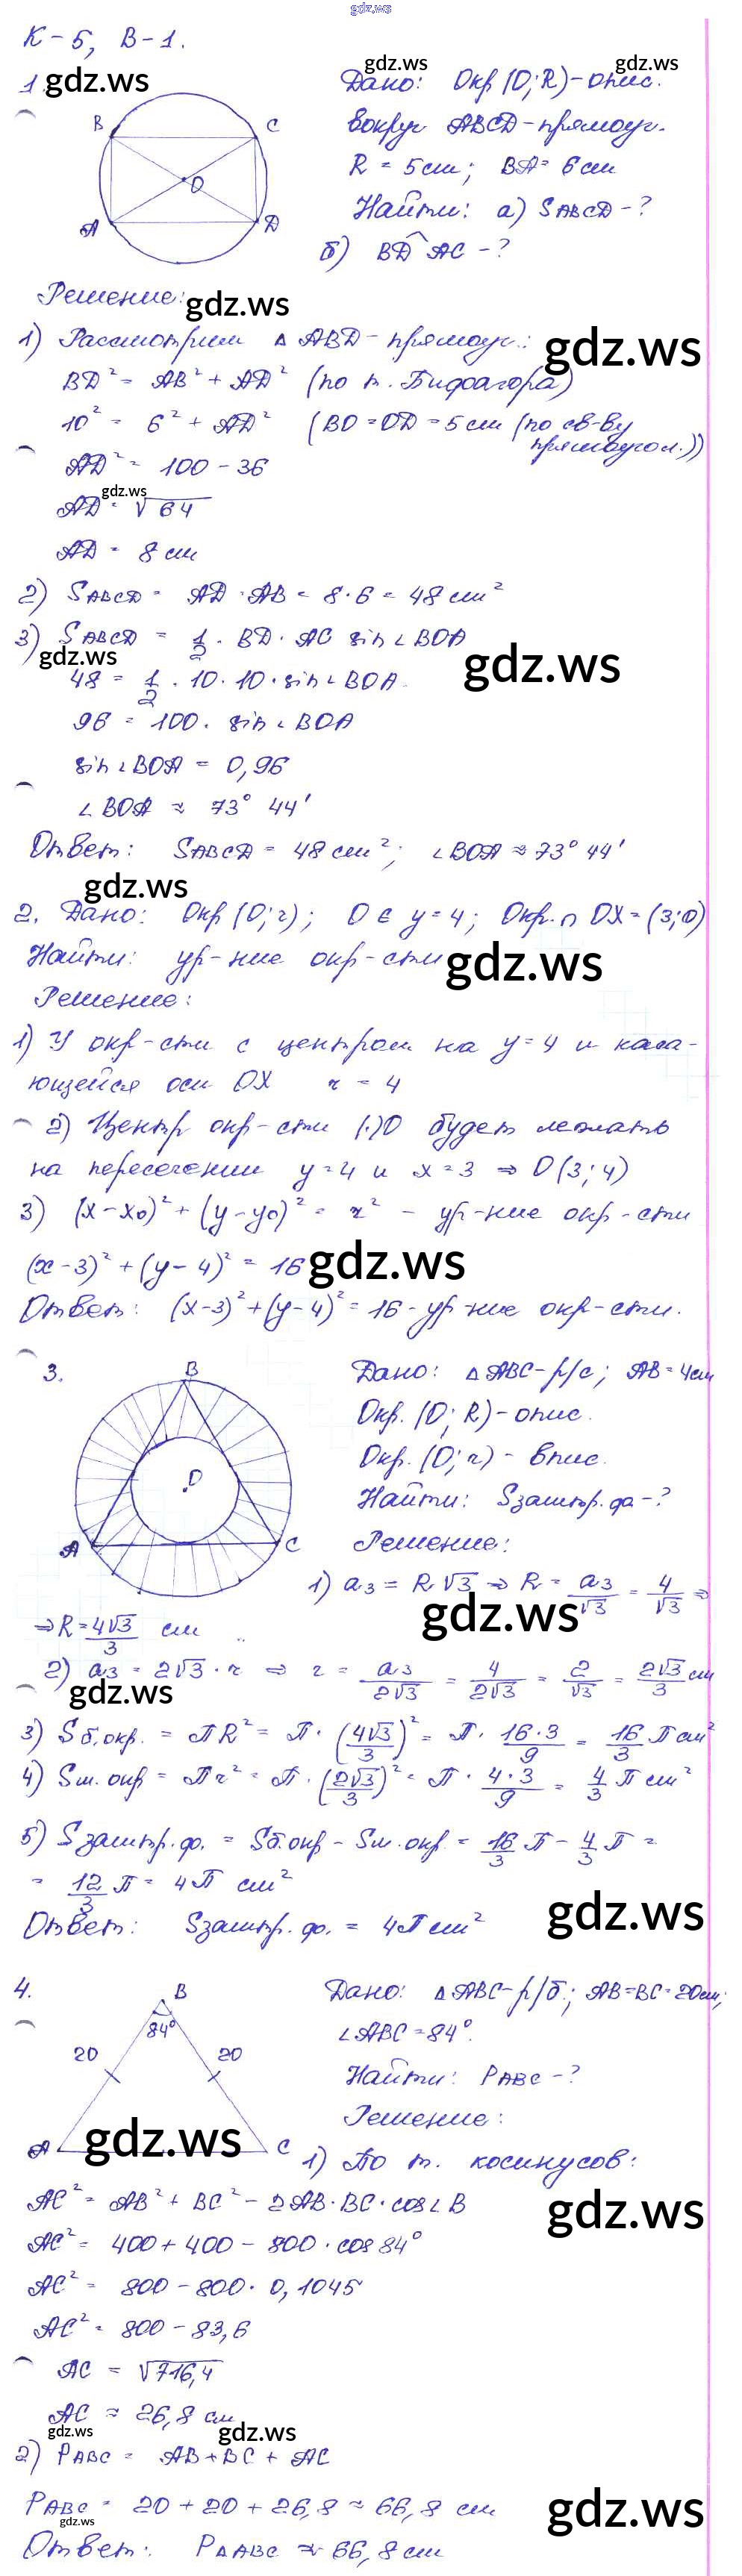 gdz.ws
К-5, В-1.
1. gdz.ws
gdz.ws gdz.ws
Дано: Окр(O;R)-опис.
вокруг ABCD-прямоуг.
R = 5см; BA = 6см
Найти: а) SABCD-?
б) BD^AC-?
B
C
O
A
D
Решение: gdz.ws
1) Рассмотрим △ABD-прямоуг.: gdz.ws
BD² = AB² + AD² (по т. Пифагора)
10² = 6² + AD² (BO=OD=5см (по св-ву
прямоугол.))
AD² = 100 - 36
gdz.ws
AD = √64
AD = 8 см
2) SABCD = AD · AB = 8·6 = 48 см²
3) SABCD = 1/2 · BD · AC sin∠BOA
gdz.ws gdz.ws
48 = 1/2 · 10 · 10 · sin∠BOA.
96 = 100 · sin∠BOA
sin∠BOA = 0,96
∠BOA ≈ 73° 44'
Ответ: SABCD = 48 см²; ∠BOA ≈ 73° 44'
gdz.ws
2. Дано: Окр(O;r); O ∈ y=4; Окр.∩OX=(3;0)
Найти: ур-ние окр-сти gdz.ws
Решение:
1) У окр-сти с центром на y=4 и каса-
ющейся оси OX r = 4
2) Центр окр-сти (·)O будет лежать
на пересечении y=4 и x=3 ⇒ O(3;4)
3) (x-x0)² + (y-y0)² = r² - ур-ние окр-сти
(x-3)² + (y-4)² = 16 gdz.ws
Ответ: (x-3)²+(y-4)²=16-ур-ние окр-сти.
3.
B
O
A
C
Дано: △ABC-р/с; AB=4см
Окр.(O;R)-опис.
Окр.(O;r)-впис.
Найти: Sзаштр.ф-?
Решение:
1) a3 = R√3 ⇒ R = a3/√3 = 4/√3 ⇒
gdz.ws
⇒ R = 4√3/3 см
2) a3 = 2√3 · r ⇒ r = a3/2√3 = 4/2√3 = 2/√3 = 2√3/3 см
gdz.ws
3) Sб.окр. = ПR² = П·(4√3/3)² = П · 16·3/9 = 16/3 П см²
4) Sм.окр = Пr² = П·(2√3/3)² = П · 4·3/9 = 4/3 П см²
5) Sзаштр.ф. = Sб.окр - Sм.окр = 16/3 П - 4/3 П =
= 12/3 П = 4П см²
gdz.ws
Ответ: Sзаштр.ф. = 4П см²
4.
B
84°
20
20
A
C
gdz.ws
Дано: △ABC-р/б; AB=BC=20см;
∠ABC=84°.
Найти: PABC-?
Решение:
1) По т. косинусов:
AC² = AB² + BC² - 2AB·BC·cos∠B
gdz.ws
AC² = 400 + 400 - 800 · cos84°
AC² = 800 - 800 · 0,1045
AC² = 800 - 83,6
AC = √716,4
AC ≈ 26,8 см
gdz.ws gdz.ws
2) PABC = AB + BC + AC
PABC = 20 + 20 + 26,8 ≈ 66,8 см
gdz.ws gdz.ws
Ответ: P△ABC ≈ 66,8 см